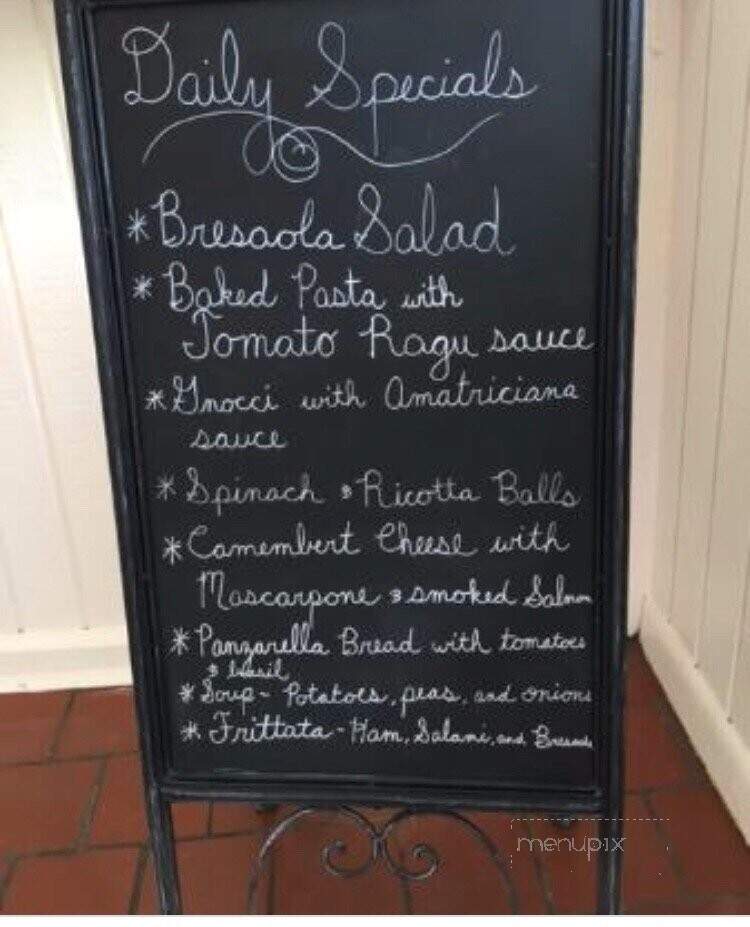 Daily Specials
* Bresaola Salad
* Baked Pasta with
Tomato Ragu sauce
* Gnocci with Amatriciana
sauce
* Spinach & Ricotta Balls
* Camembert Cheese with
Mascarpone & smoked Salmon
* Panzarella Bread with tomatoes
& basil
* Soup - Potatoes, peas, and onions
* Frittata - Ham, Salami, and
menupix